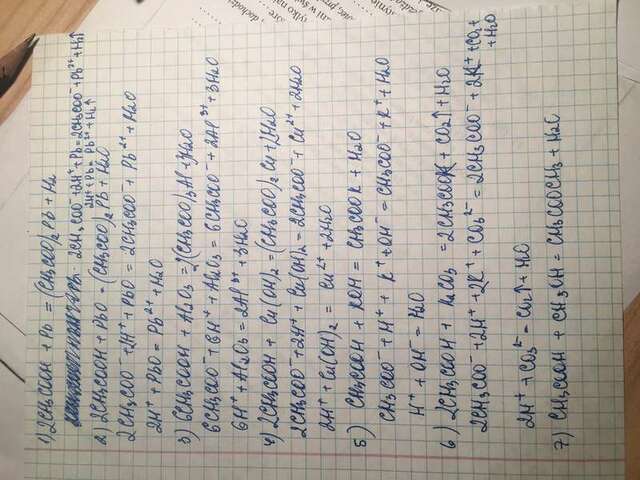 1) 2CH3COOH + Pb = (CH3COO)2Pb + H2
2CH3COO⁻ + 2H⁺ + Pb = 2CH3COO⁻ + Pb²⁺ + H2↑
2H⁺ + Pb = Pb²⁺ + H2↑
2) 2CH3COOH + PbO = (CH3COO)2Pb + H2O
2CH3COO⁻ + 2H⁺ + PbO = 2CH3COO⁻ + Pb²⁺ + H2O
2H⁺ + PbO = Pb²⁺ + H2O
3) 6CH3COOH + Al2O3 = 2(CH3COO)3Al + 3H2O
6CH3COO⁻ + 6H⁺ + Al2O3 = 6CH3COO⁻ + 2Al³⁺ + 3H2O
6H⁺ + Al2O3 = 2Al³⁺ + 3H2O
4) 2CH3COOH + Cu(OH)2 = (CH3COO)2Cu + 2H2O
2CH3COO⁻ + 2H⁺ + Cu(OH)2 = 2CH3COO⁻ + Cu²⁺ + 2H2O
2H⁺ + Cu(OH)2 = Cu²⁺ + 2H2O
5) CH3COOH + KOH = CH3COOK + H2O
CH3COO⁻ + H⁺ + K⁺ + OH⁻ = CH3COO⁻ + K⁺ + H2O
H⁺ + OH⁻ = H2O
6) 2CH3COOH + K2CO3 = 2CH3COOK + CO2↑ + H2O
2CH3COO⁻ + 2H⁺ + 2K⁺ + CO3²⁻ = 2CH3COO⁻ + 2K⁺ + CO2↑
+ H2O
2H⁺ + CO3²⁻ = CO2↑ + H2O
7) CH3COOH + CH3OH = CH3COOCH3 + H2O
dochoda
tylko na